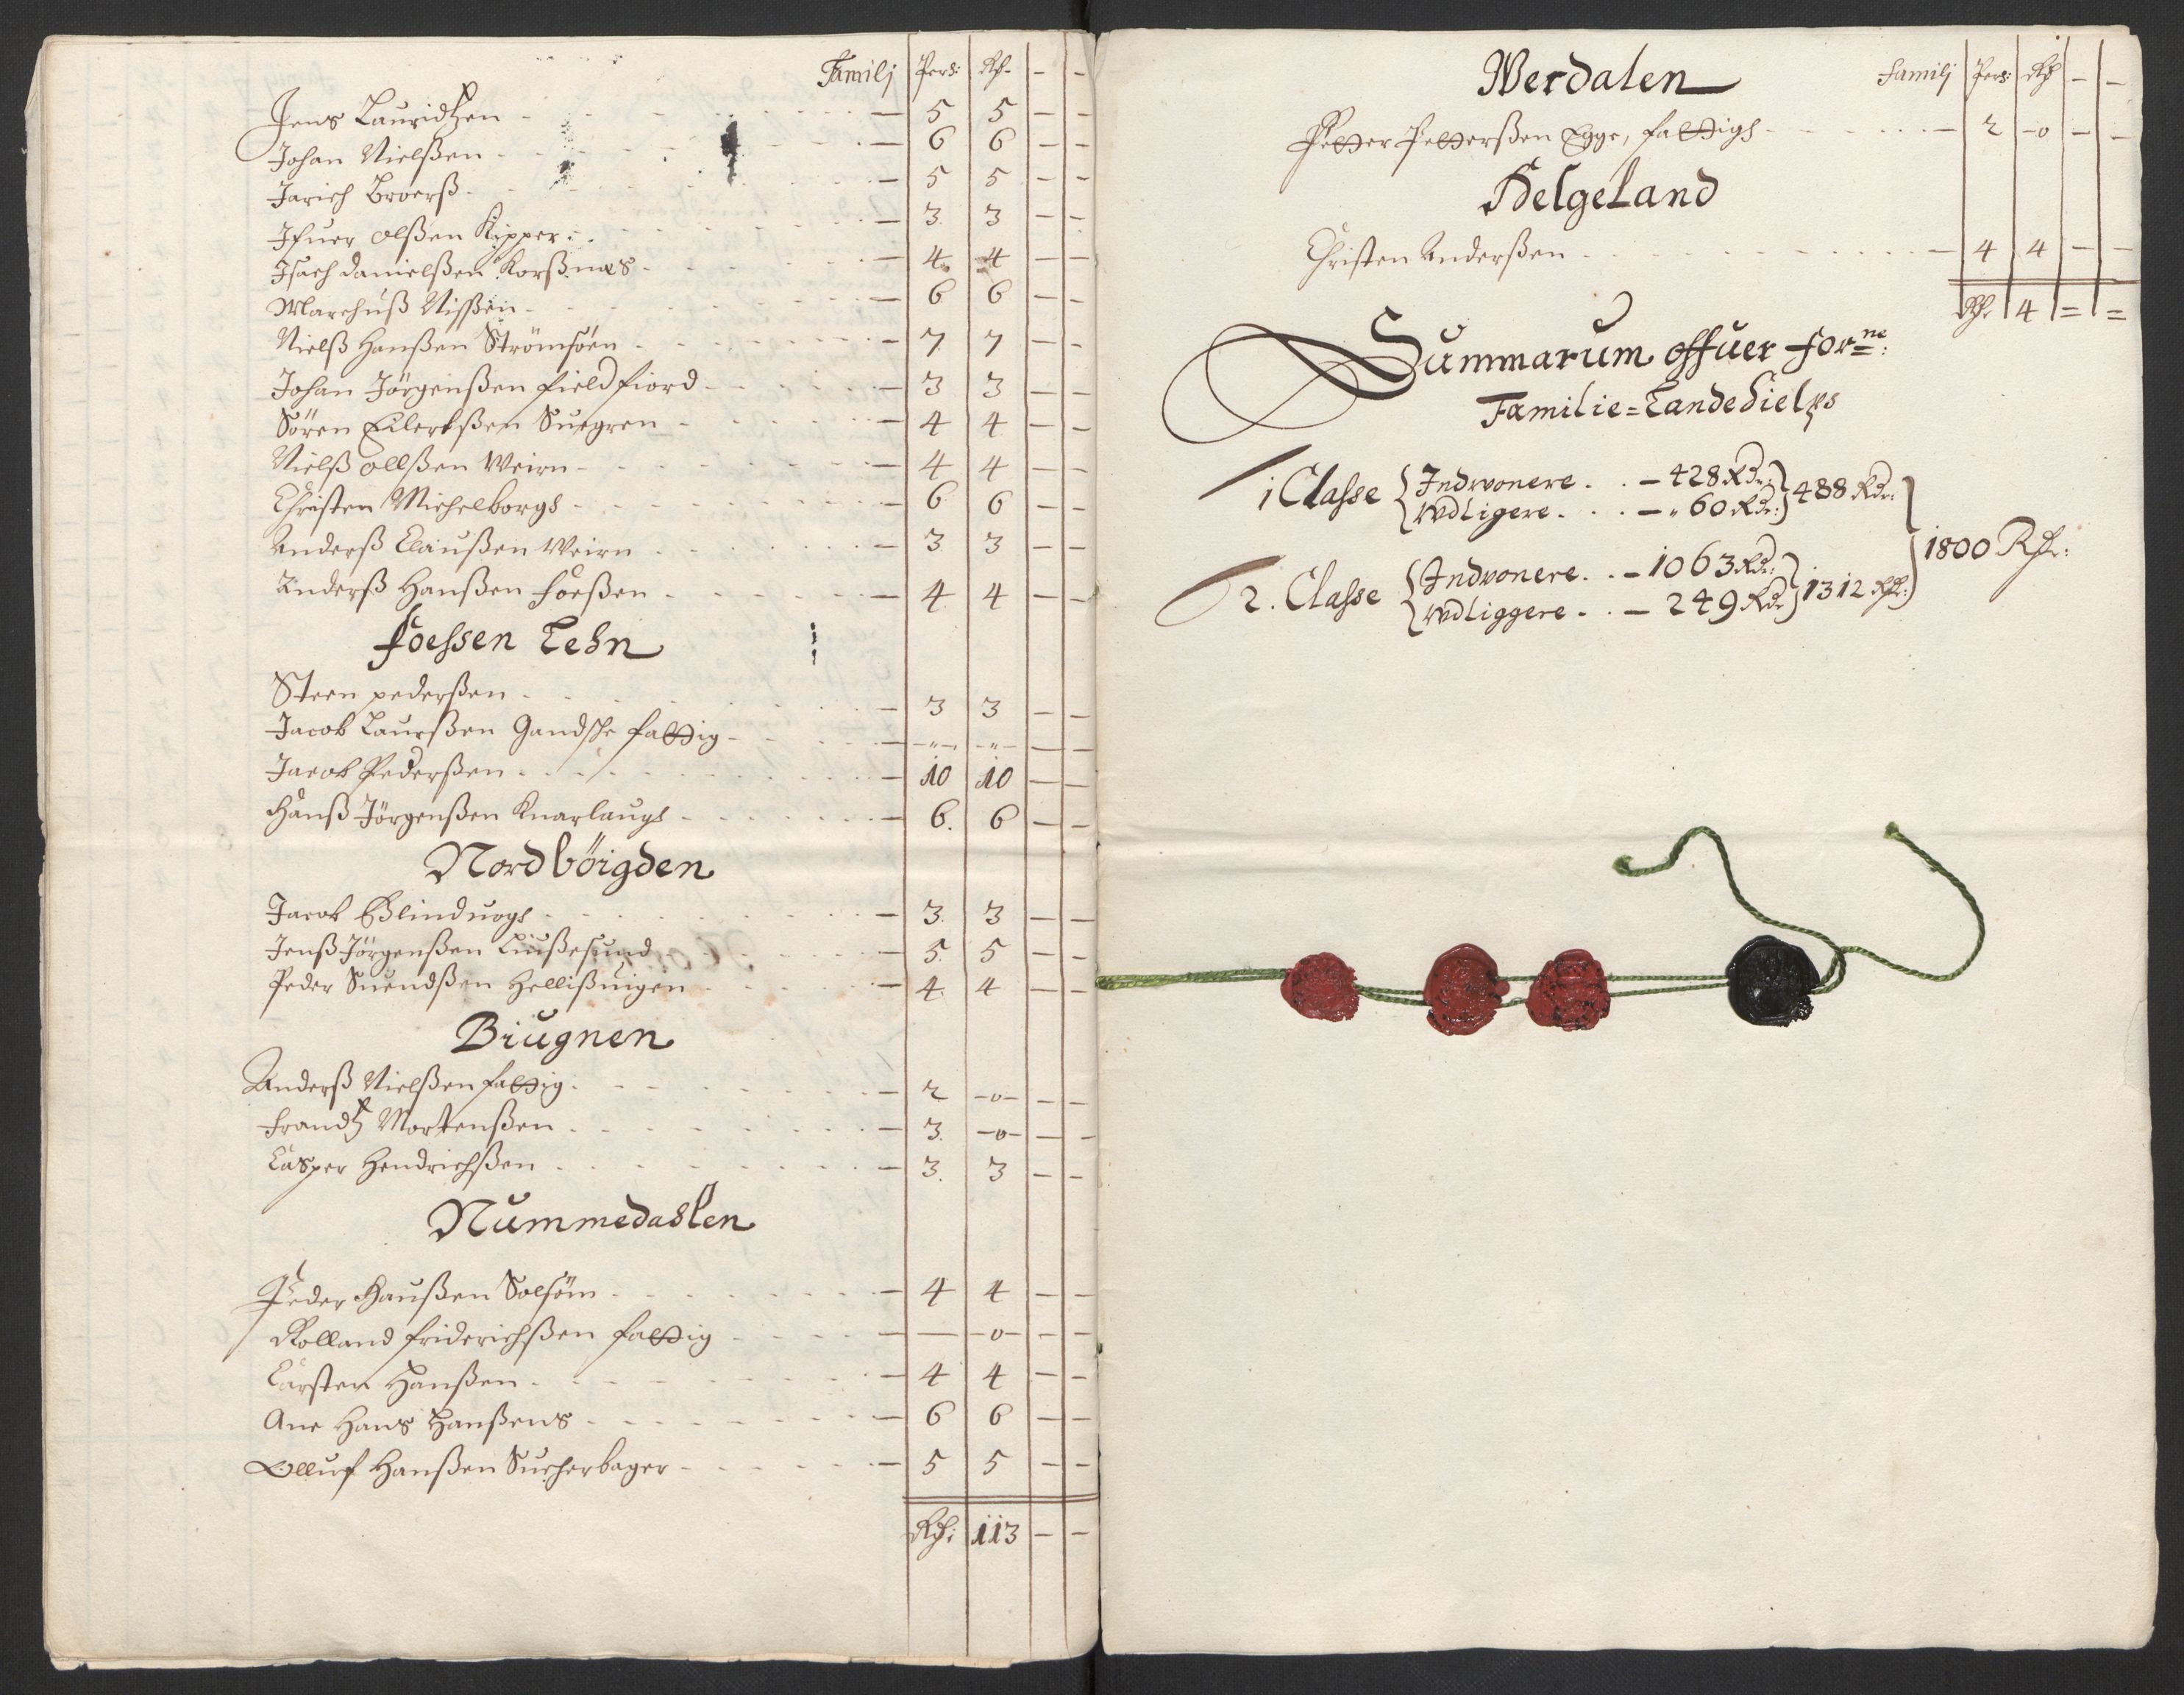 Familj Pers: Rd. - -
Jens Lauridtzen - 5 5 - -
Johan Nielßen - 6 6 - -
Jarich Broerß - 5 5 - -
Ifuer Olßen Kipper - 3 3 - -
Isach Danielßen Korßnæs - 4 4 - -
Marchuß Nißen - 6 6 - -
Nielß Hanßen Strömsöen - 7 7 - -
Johan Jörgenßen fieldfiord - 3 3 - -
Sören Eilerßen Suegren - 4 4 - -
Nielß Ollßen Weirn - 4 4 - -
Christen Michelborgs - 6 6 - -
Anderß Claußen Weirn - 3 3 - -
Anderß Hanßen foeßen - 4 4 - -
foessen Lehn
Steen pederßen - 3 3 - -
Jacob Laurßen Gandske fattig - -"- -"- - -
Jacob Pederßen - 10 10 - -
Hanß Jörgenßen Knarlaugs - 6. 6 - -
Nordböigden
Jacob Blinduogs - 3 3 - -
Jenß Jörgenßen Liußesund - 5 5 - -
Peder Suendßen Hellißuigen - 4 4 - -
Biugnen
Anderß Nielßen fattig - 2 -0- - -
Frandtz Mortenßen - 3. -0- - -
Casper Hendrichßen - 3. 3 - -
Nummedahlen
Peder Hanßen Solsöm - 4 4 - -
Rolland friderichßen fattig - — -0- - -
Carsten Hanßen - 4 4 - -
Ane Hans Hanßens - 6 6 - -
Olluf Hanßen Sucherbager - 5 5 - -
Rd: 113 - -
Werdalen
Familj Pers: Rd - -
Petter Petterßen Egge, fattigs - 2 -0 - -
Helgeland
Christen Anderßen - 4 4 - -
Rd. 4 = =
Summarum offuer for=ne:
Familie=Landehielps
1 Classe { Indwonere . . - 428 Rd: } 488 Rdr:
{ Wdligere . . . - „ 60 Rdr: }
} 1800 Rdr:
2. Classe { Indwonere . . - 1063 Rd: } 1312 Rdr:
{ Wdliggere - . - 249 Rdr }